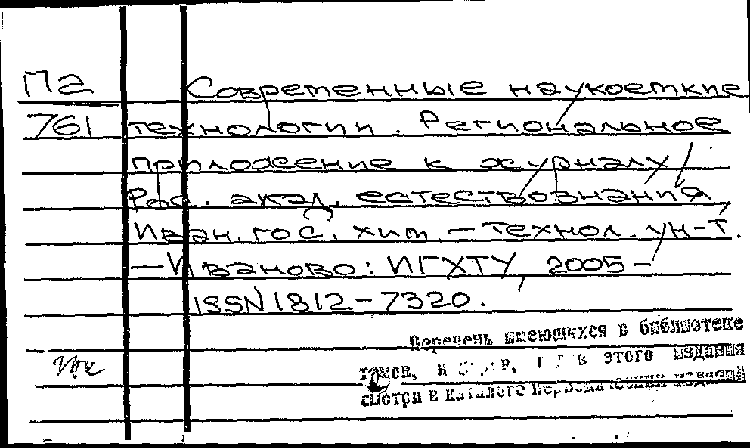 Па Современные наукоемкие
761 технологии. Региональное
приложение к журналу
Рос. акад. естествознания,
Иван. гос. хим. – технол. ун-т.
– Иваново: ИГХТУ, 2005 –
ISSN 1812-7320.
Перечень имеющихся в библиотеке
томов, и в этого издания
смотри в каталоге периодических изданий